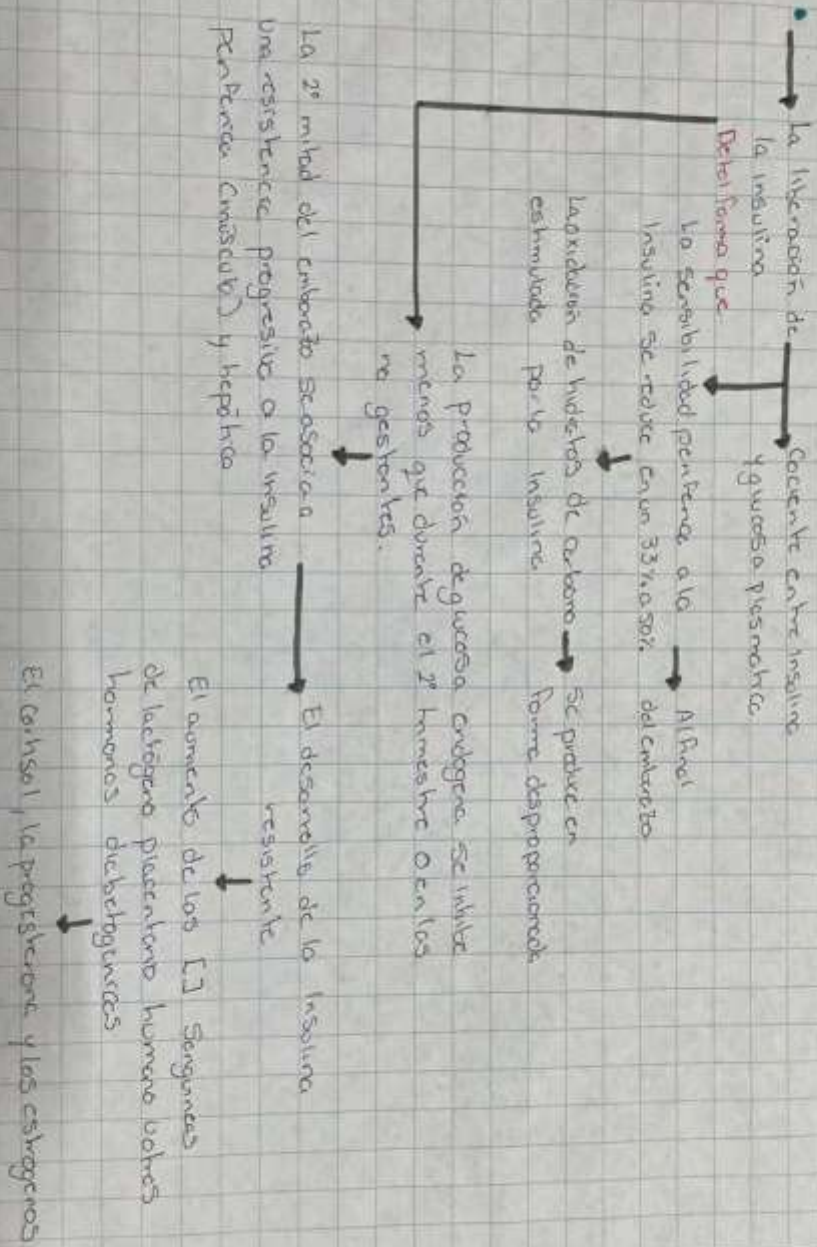 La liberación de
la insulina
Cociente entre insulina
y glucosa plasmática
De tal forma que
La sensibilidad periférica a la
Insulina se reduce en un 33% a 50%
Al final
del embarazo
La oxidación de hidratos de carbono
estimulada por la Insulina
Se produce en
forma desproporcionada
La producción de glucosa endógena se inhibe
menos que durante el 2º trimestre o en las
no gestantes.
La 2º mitad del embarazo se asocia a
una resistencia progresiva a la Insulina
periférica (músculo) y hepática
El desarrollo de la Insulina
resistente
El aumento de las [] Sanguineas
de lactógeno placentario humano u otras
hormonas diabetogénicas
El cortisol, la progesterona y los estrogenos